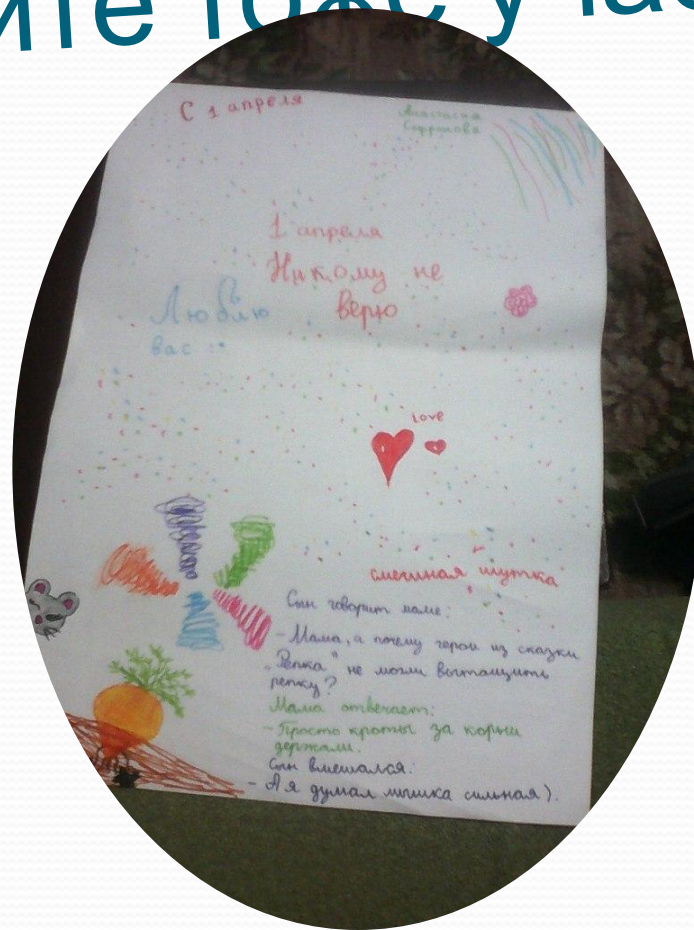 С 1 апреля
Анастасия
1 апреля
Никому не
верю
Люблю
вас :)
Love
смешная шутка
Сын говорит маме:
- Мама, а почему герои из сказки
„Репка" не могли вытащить
репку?
Мама отвечает:
- Просто кроты за корни
держали.
Сын вмешался:
- А я думал мышка сильная).